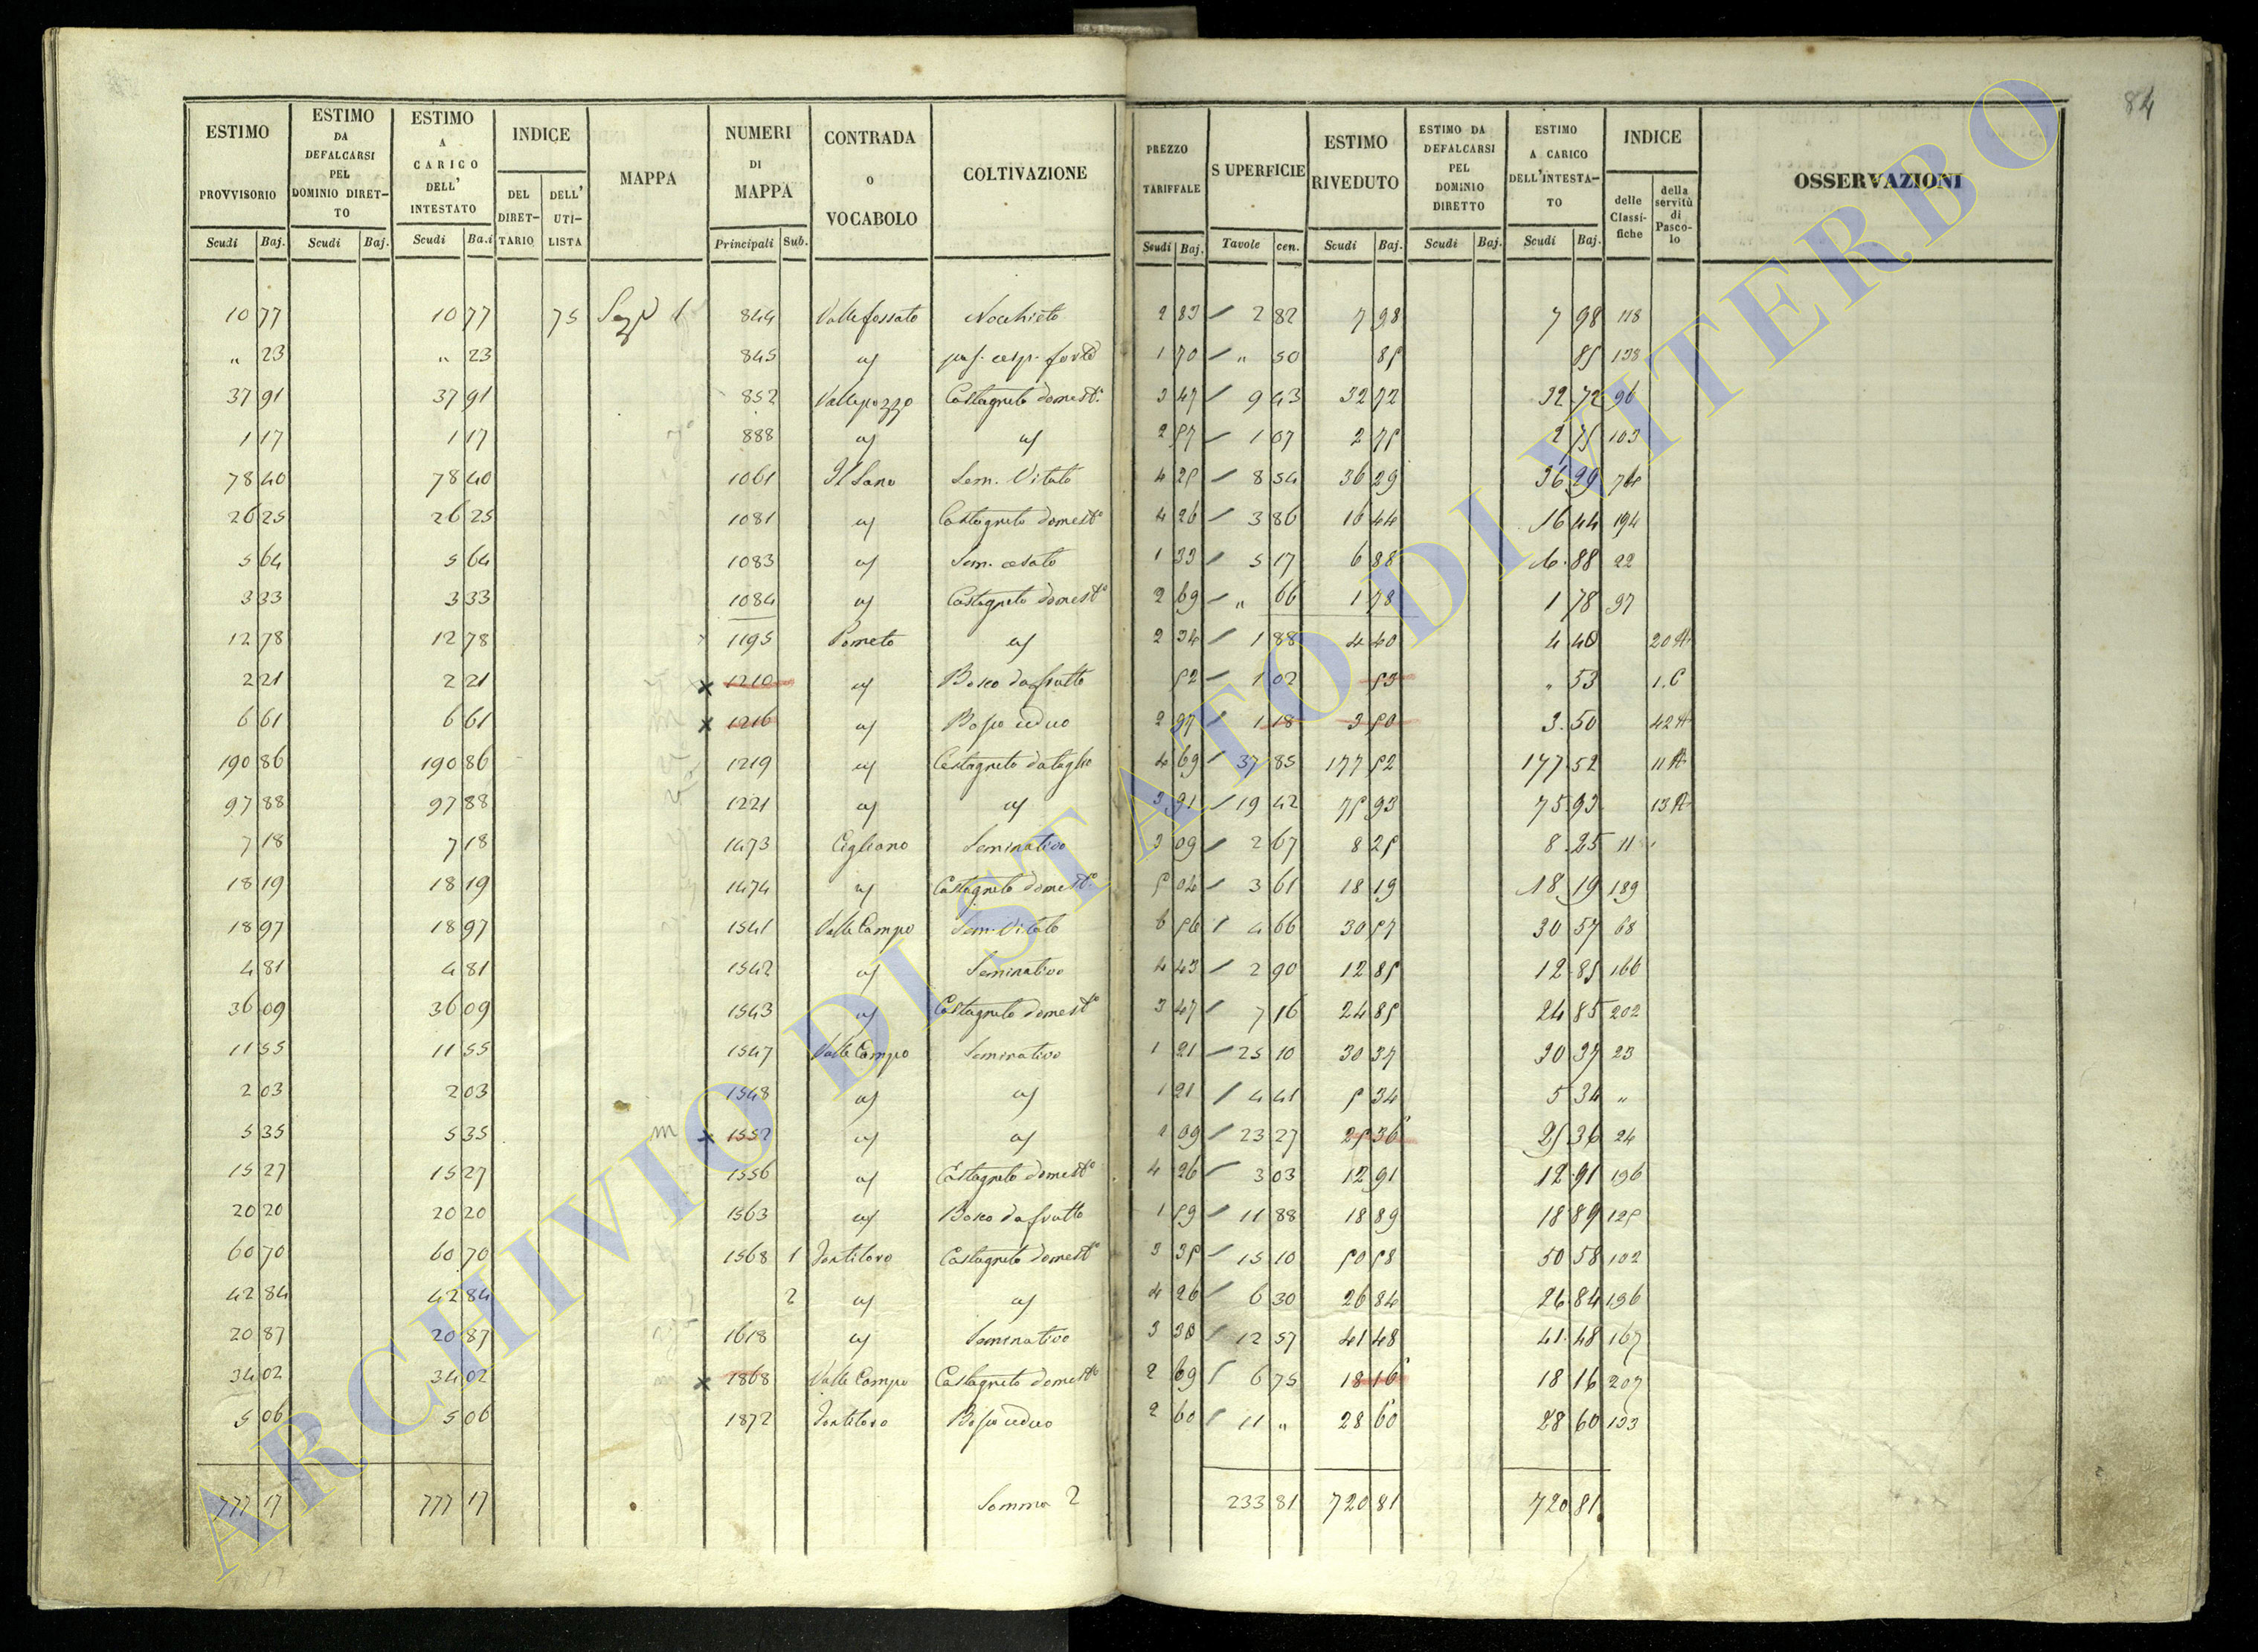 84
ESTIMO PROVVISORIO | ESTIMO DA DEFALCARSI PEL DOMINIO DIRETTO | ESTIMO A CARICO DELL' INTESTATO | INDICE | MAPPA | NUMERI DI MAPPA | CONTRADA O VOCABOLO | COLTIVAZIONE | PREZZO TARIFFALE | SUPERFICIE | ESTIMO RIVEDUTO | ESTIMO DA DEFALCARSI PEL DOMINIO DIRETTO | ESTIMO A CARICO DELL'INTESTATO | INDICE | OSSERVAZIONI
DEL DIRETTARIO | DELL' UTILISTA | delle Classifiche | della servitù di Pascolo
Scudi Baj. | Scudi Baj. | Scudi Ba.i | Principali Sub. | Scudi Baj. | Tavole cen. | Scudi Baj. | Scudi Baj. | Scudi Baj.
10 77 | 10 77 | 75 | 844 | Valle fossato | Nocchieto | 2 83 | 2 82 | 7 98 | 7 98 | 118
" 23 | " 23 | 845 | 1 70 | " 50 | 85 | 85 | 138
37 91 | 37 91 | 852 | Vallepozzo | Castagneto domest.o | 3 47 | 9 43 | 32 72 | 32 72 | 96
1 17 | 1 17 | 888 | 2 57 | 1 07 | 2 75 | 2 75 | 103
78 40 | 78 40 | 1061 | Sem. Vitato | 4 25 | 8 54 | 36 29 | 36 29
26 25 | 26 25 | 1081 | Castagneto domest.o | 4 26 | 3 86 | 16 44 | 16 44 | 194
5 64 | 5 64 | 1083 | 1 33 | 5 17 | 6 88 | 6 88 | 22
3 33 | 3 33 | 1084 | Castagneto domest.o | 2 69 | " 66 | 1 78 | 1 78 | 97
12 78 | 12 78 | 1195 | Pometo | 2 34 | 1 88 | 4 40 | 4 40 | 20 A
2 21 | 2 21 | x 1210 | Bosco da frutto | 52 | 1 02 | 53 | " 53 | 1.C
6 61 | 6 61 | x 1216 | Bosco ceduo | 2 97 | 1 18 | 3 50 | 3 50 | 42 A
190 86 | 190 86 | 1219 | Castagneto da taglio | 4 69 | 37 85 | 177 52 | 177 52 | 11 A
97 88 | 97 88 | 1221 | 3 91 | 19 42 | 75 93 | 75 93 | 13 A
7 18 | 7 18 | 1473 | Cigliano | Seminativo | 3 09 | 2 67 | 8 25 | 8 25
18 19 | 18 19 | 1474 | Castagneto domest.o | 5 04 | 3 61 | 18 19 | 18 19 | 189
18 97 | 18 97 | 1541 | Valle Campo | Sem. Vitato | 6 56 | 4 66 | 30 57 | 30 57 | 68
4 81 | 4 81 | 1542 | Seminativo | 4 43 | 2 90 | 12 85 | 12 85 | 166
36 09 | 36 09 | 1543 | Castagneto domest.o | 3 47 | 7 16 | 24 85 | 24 85 | 202
11 55 | 11 55 | 1547 | Valle Campo | Seminativo | 1 21 | 25 10 | 30 37 | 30 37 | 23
2 03 | 2 03 | 1548 | 1 21 | 4 41 | 5 34 | 5 34 | "
5 35 | 5 35 | m x 1552 | 1 09 | 23 27 | 25 36 | 25 36 | 24
15 27 | 15 27 | 1556 | Castagneto domest.o | 4 26 | 3 03 | 12 91 | 12 91 | 196
20 20 | 20 20 | 1563 | Bosco da frutto | 1 59 | 11 88 | 18 89 | 18 89 | 125
60 70 | 60 70 | 1568 1 | Castagneto domest.o | 3 35 | 15 10 | 50 58 | 50 58 | 102
42 84 | 42 84 | 2 | 4 26 | 6 30 | 26 84 | 26 84 | 196
20 87 | 20 87 | 1618 | Seminativo | 3 30 | 12 57 | 41 48 | 41 48 | 167
34 02 | 34 02 | x 1868 | Valle Campo | Castagneto domest.o | 2 69 | 6 75 | 18 16 | 18 16 | 207
5 06 | 5 06 | 1872 | Bosco ceduo | 2 60 | 11 " | 28 60 | 28 60 | 133
777 17 | 777 17 | Somma 2 | 233 81 | 720 81 | 720 81
ARCHIVIO DI STATO DI VITERBO